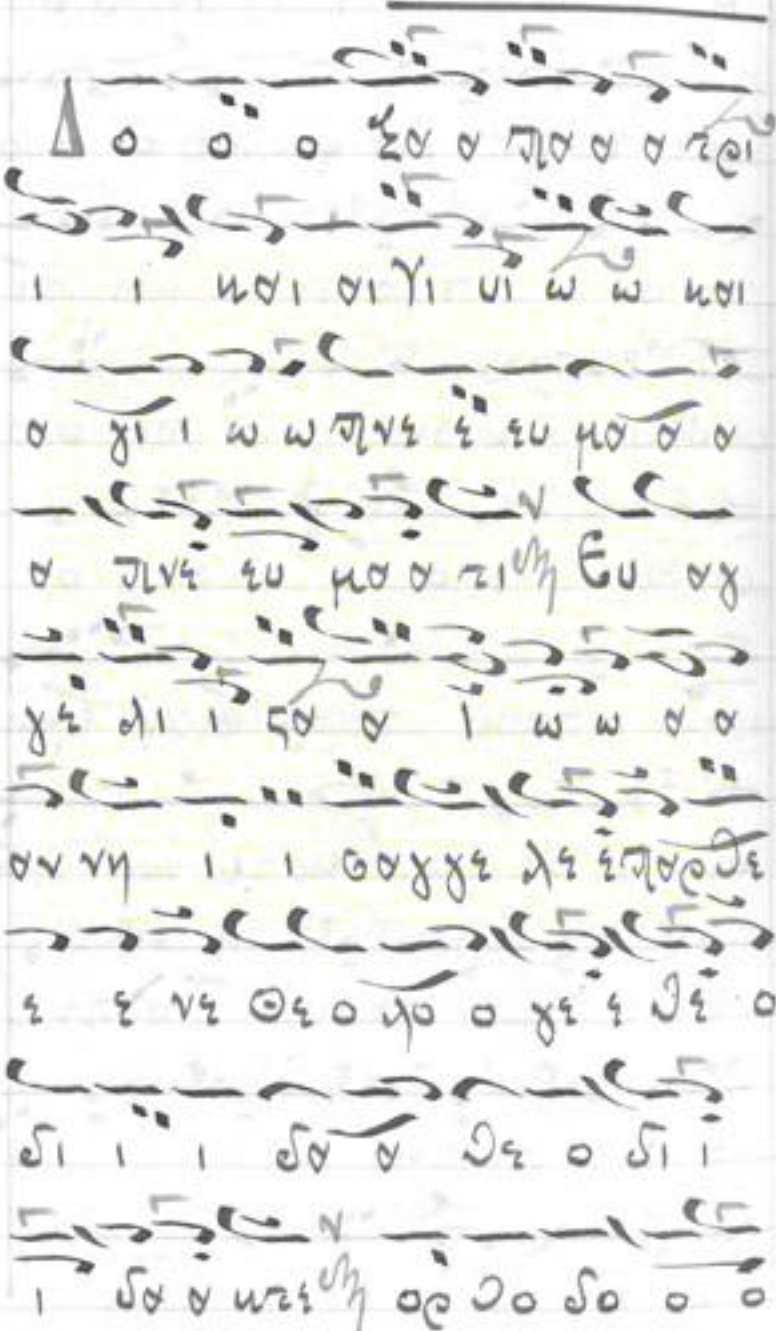 Δ ο ο ο ξα α πα α α τρι
ι ι και αι γι υι ω ω και
α γι ι ω ω πνε ε ευ μα α α
α πνε ευ μα α τι Ευ αγ
γε λι ι στα α Ι ω ω α α
αν νη ι ι σαγ γε λε ε παρ θε
ε ε νε Θε ο λο ο γε ε θε ο
δι ι ι δα α θε ο δι ι
ι δα α κτε ορ θο δο ο ο